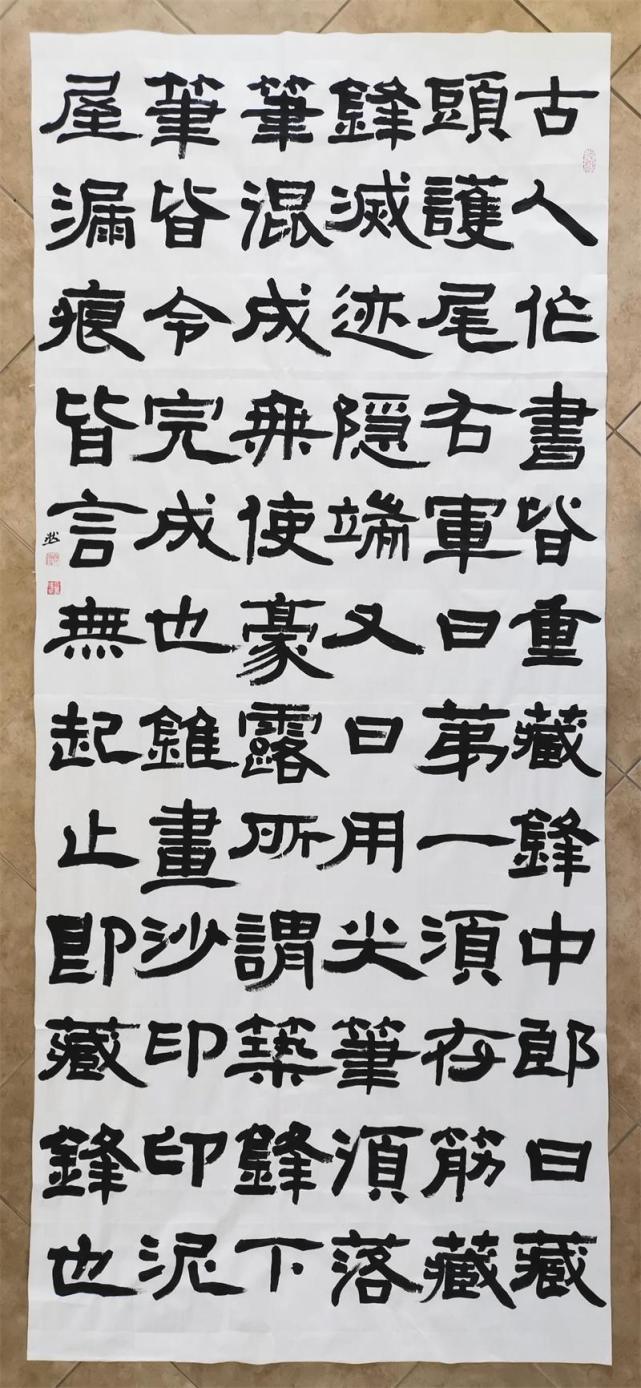 古人作書皆重藏鋒中郎曰藏
頭護尾右軍曰第一須存筋藏
鋒滅迹隱端又曰用尖筆須落
筆混成無使豪露所謂築鋒下
筆皆令完成也錐畫沙印印泥
屋漏痕皆言無起止即藏鋒也